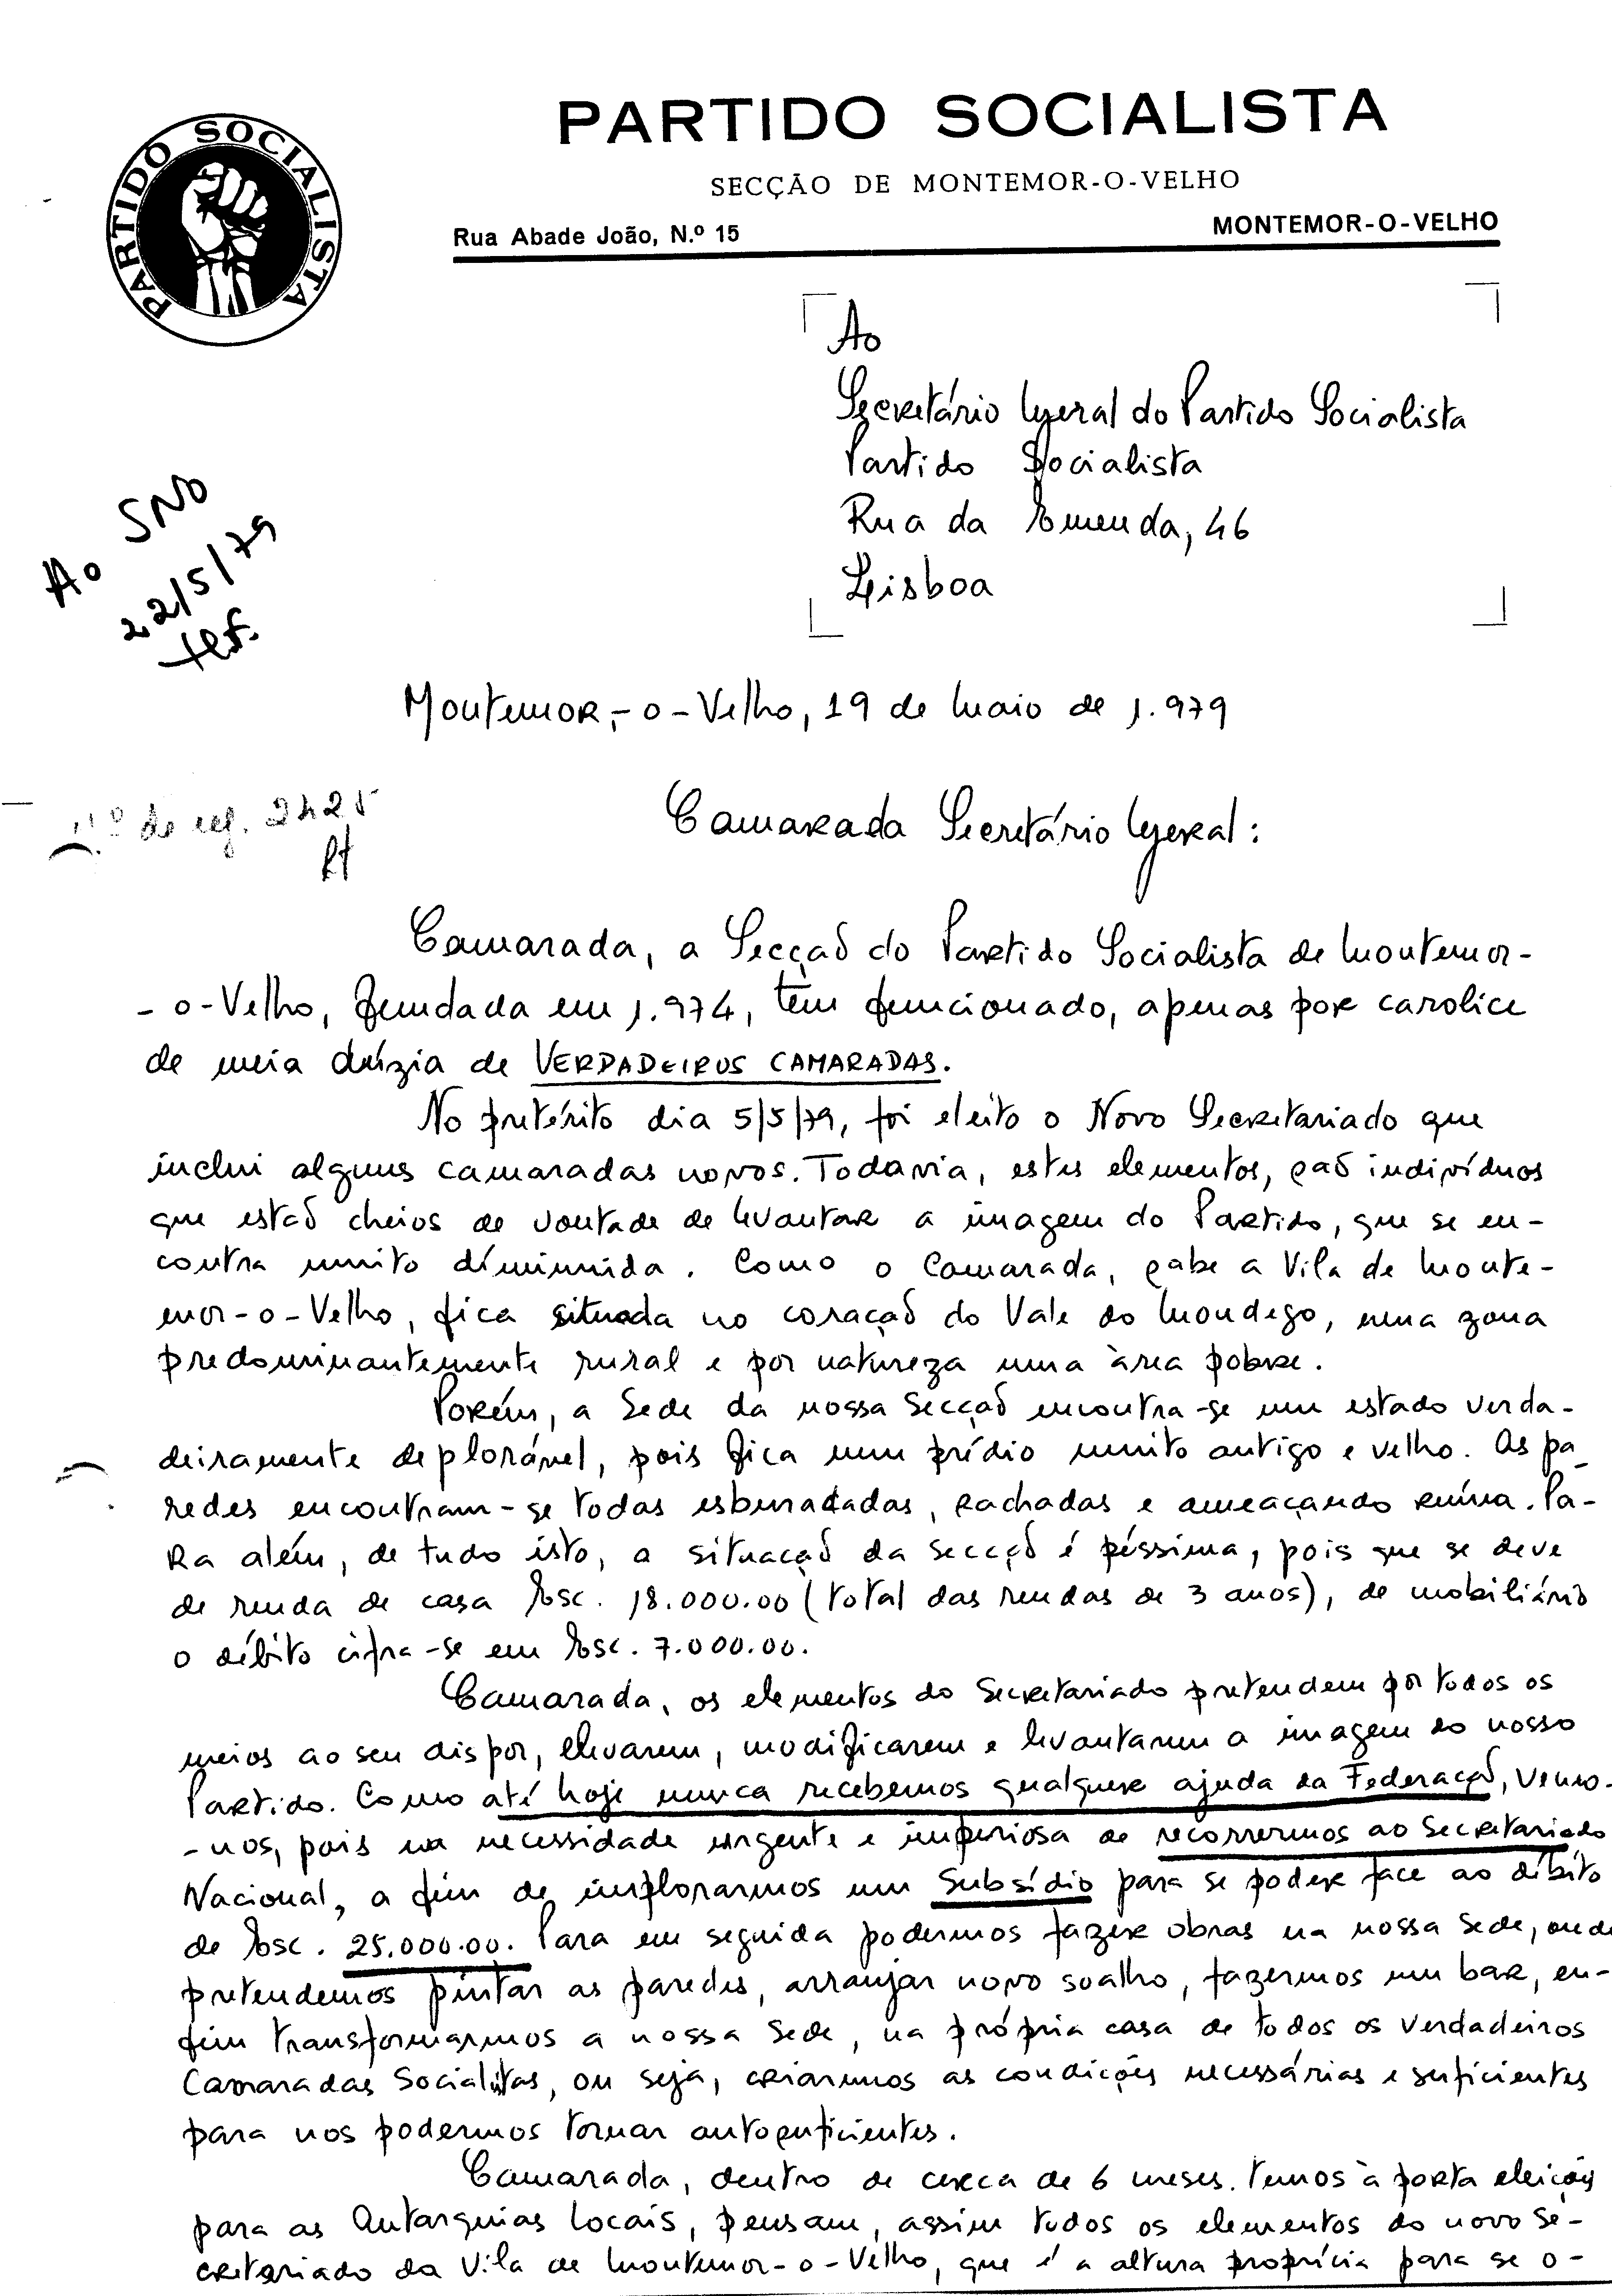 PARTIDO SOCIALISTA
PARTIDO SOCIALISTA
SECÇÃO DE MONTEMOR-O-VELHO
Rua Abade João, N.º 15
MONTEMOR-O-VELHO
Ao
Secretário Geral do Partido Socialista
Partido Socialista
Rua da Emenda, 46
Lisboa
Ao SNO
22/5/79
Montemor,-o-Velho, 19 de Maio de 1.979
nº de reg. 2425
Camarada Secretário Geral:
Camarada, a Secção do Partido Socialista de Montemor-
-o-Velho, fundada em 1.974, têm funcionado, apenas por carolice
de meia dúzia de VERDADEIROS CAMARADAS.
No pretérito dia 5/5/79, foi eleito o Novo Secretariado que
inclui alguns camaradas novos. Todavia, estes elementos, são indivíduos
que estão cheios de vontade de levantar a imagem do Partido, que se en-
contra muito diminuida. Como o Camarada, sabe a Vila de Monte-
mor-o-Velho, fica situada no coração do Vale do Mondego, numa zona
predominantemente rural e por natureza uma àrea pobre.
Porém, a Sede da nossa Secção encontra-se num estado verda-
deiramente deplorável, pois fica num prédio muito antigo e velho. As pa-
redes encontram-se todas esburacadas, rachadas e ameaçando ruína. Pa-
ra além, de tudo isto, a situação da secção é péssima, pois que se deve
de renda de casa Esc. 18.000.00 (total das rendas de 3 anos), de mobiliário
o débito cifra-se em Esc. 7.000.00.
Camarada, os elementos do Secretariado pretendem por todos os
meios ao seu dispor, elevarem, modificarem e levantarem a imagem do nosso
Partido. Como até hoje nunca recebemos qualquer ajuda da Federação, vemo-
-nos, pois na necessidade urgente e imperiosa de recorrermos ao Secretariado
Nacional, a fim de implorarmos um Subsídio para se poder face ao débito
de Esc. 25.000.00. Para em seguida podermos fazer obras na nossa Sede, onde
pretendemos pintar as paredes, arranjar novo soalho, fazermos um bar, en-
fim transformarmos a nossa Sede, na própria casa de todos os verdadeiros
Camaradas Socialistas, ou seja, criarmos as condições necessárias e suficientes
para nos podermos tornar autosuficientes.
Camarada, dentro de cerca de 6 meses. Temos à porta eleições
para as Autarquias locais, pensam, assim todos os elementos do novo Se-
cretariado da Vila de Montemor-o-Velho, que é a altura proprícia para se o-